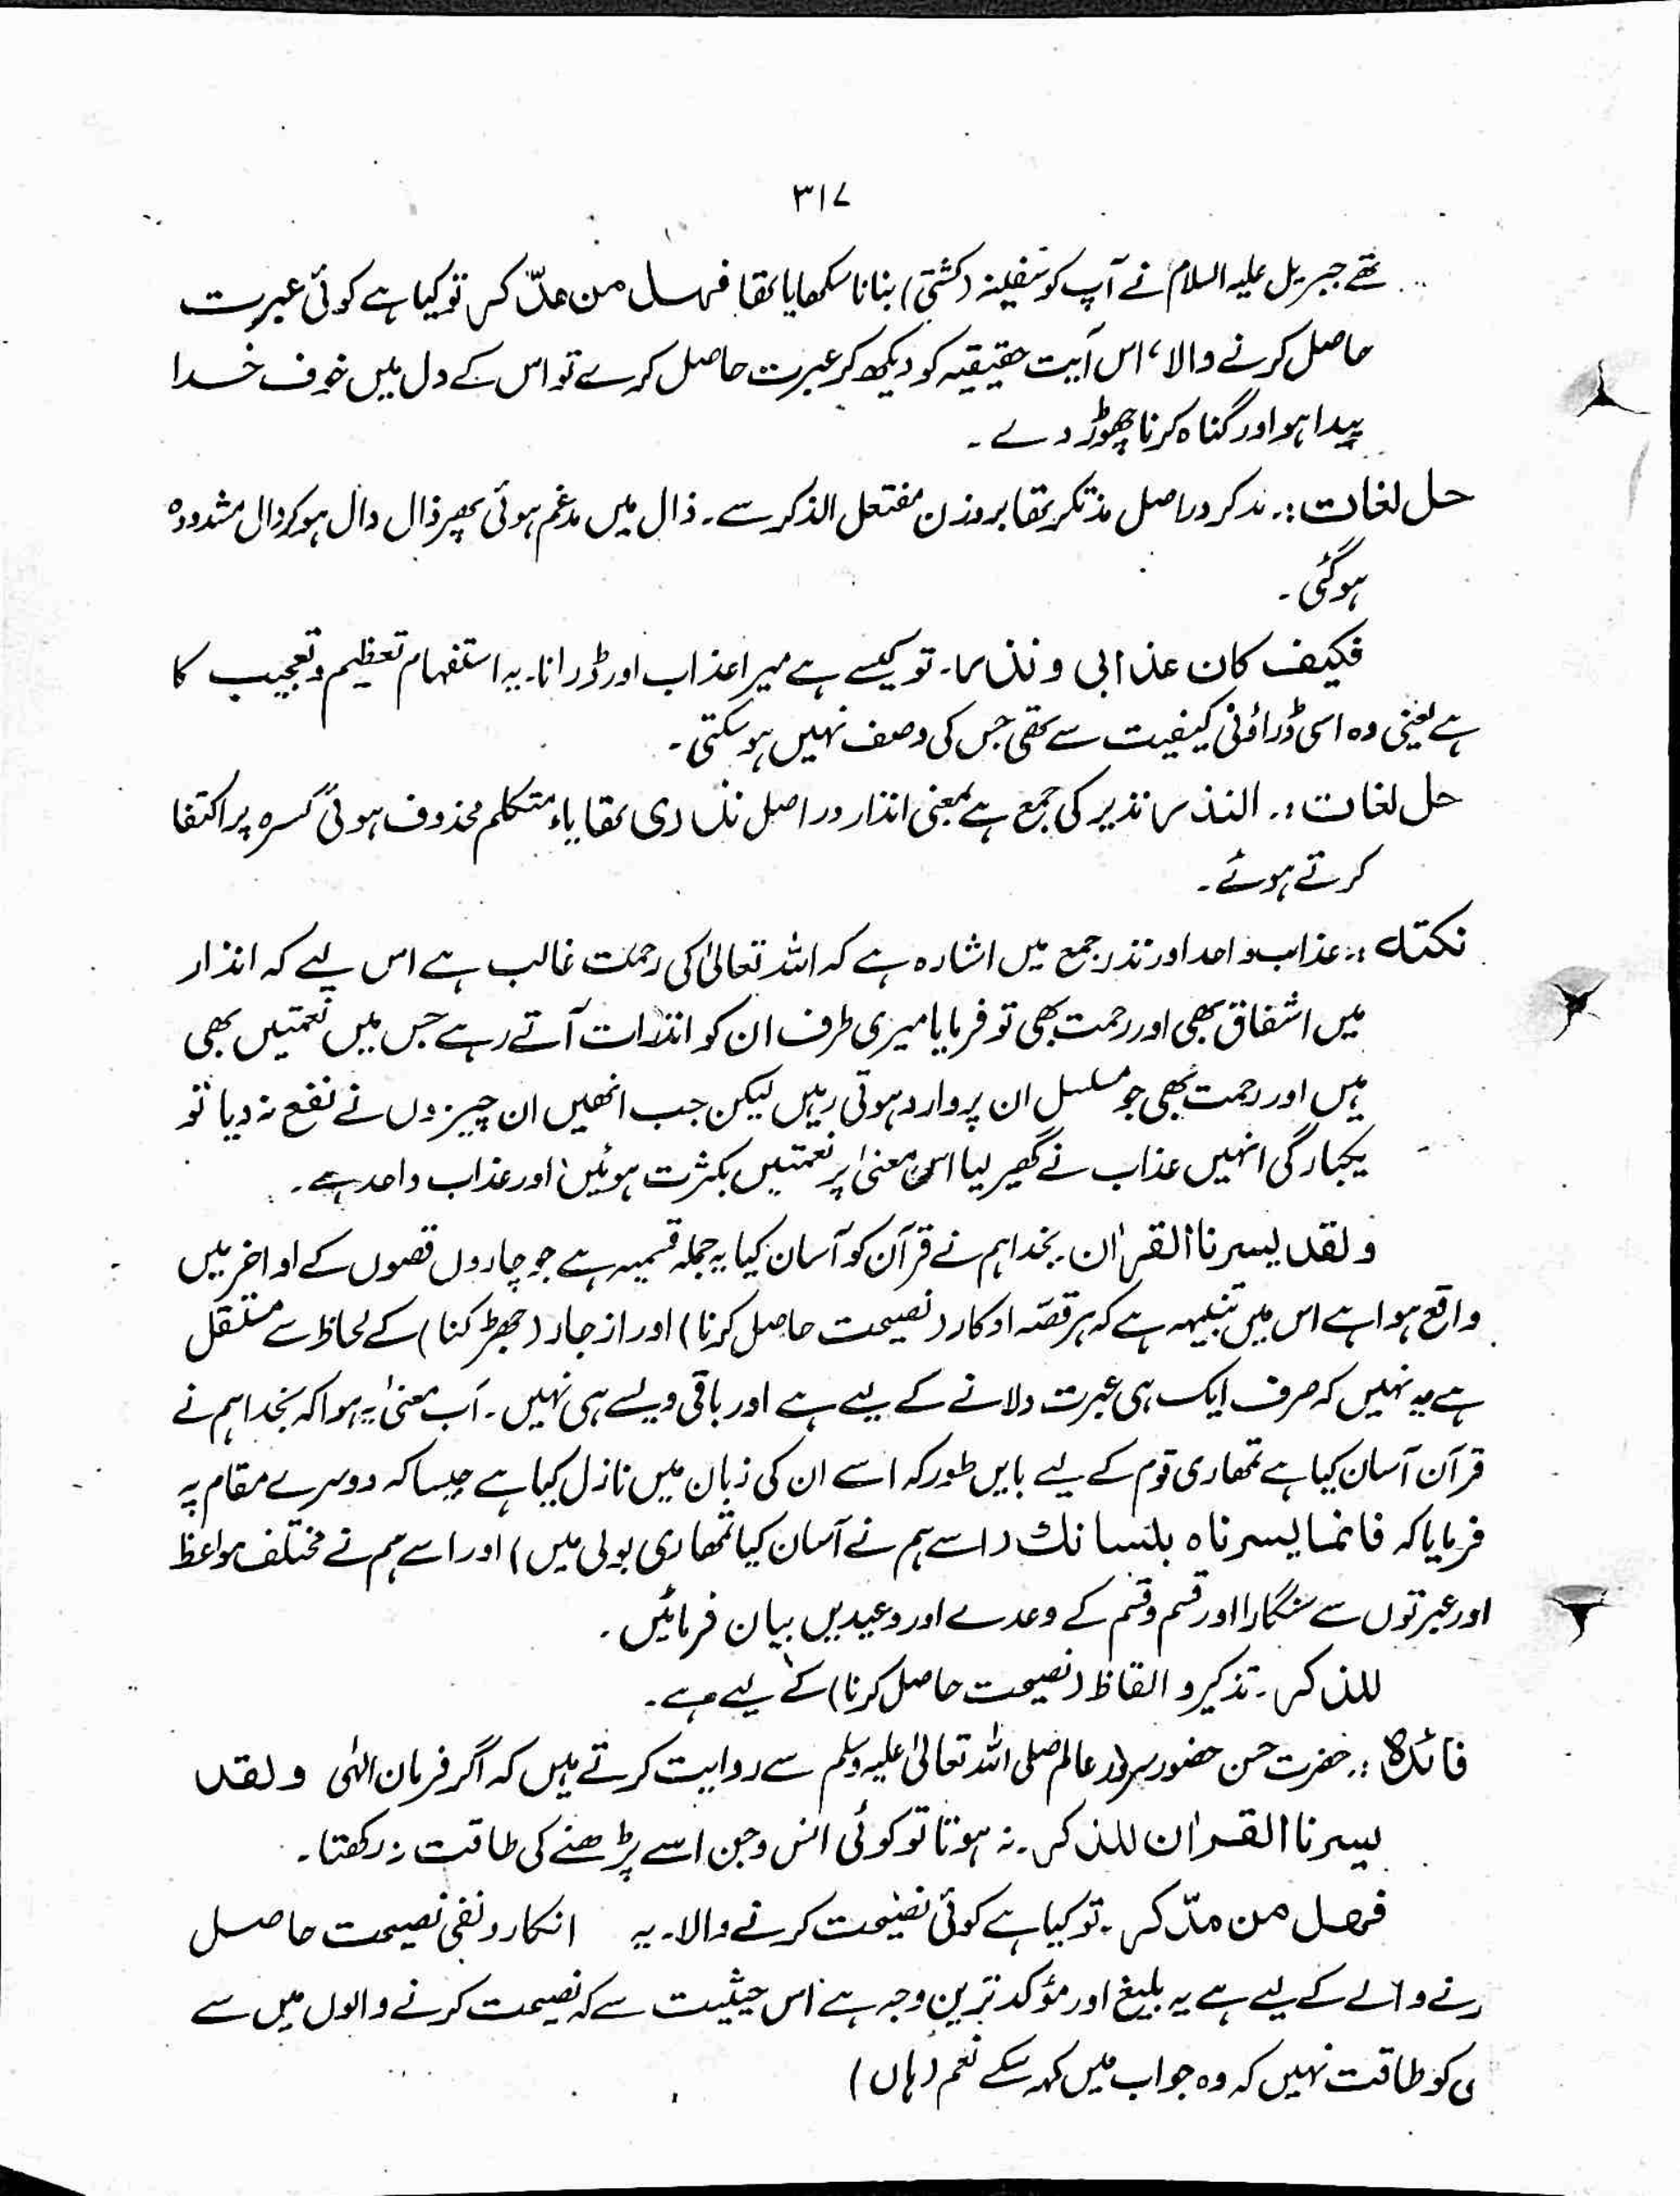 ۳۱۷
تھے جبریل علیہ السلام نے آپ کو سفینہ (کشتی) بنانا سکھایا تھا فہل من مدّکر تو کیا ہے کوئی عبرت
حاصل کرنے والا، اس آیت حقیقیہ کو دیکھ کر عبرت حاصل کرے تو اس کے دل میں خوف خدا
پیدا ہو اور گناہ کرنا چھوڑ دے ۔
حل لغات :۔ مدکر دراصل مذتکر تھا بروزن مفتعل الذکر سے ۔ ذال میں مدغم ہوئی پھر ذال دال ہو کر دال مشددہ
ہوگئی ۔
فکیف کان عذابی و نذر ۔ تو کیسے ہے میرا عذاب اور ڈرانا ۔ یہ استفہام تعظیم و تعجیب کا
ہے یعنی وہ اسی ڈراؤنی کیفیت سے تھی جس کی وصف نہیں ہو سکتی ۔
حل لغات :۔ النذر نذیر کی جمع ہے بمعنی انذار دراصل نذری تھا یاء متکلم محذوف ہوئی کسرہ پر اکتفا
کرتے ہوئے ۔
نکتہ :۔ عذاب واحد اور نذر جمع میں اشارہ ہے کہ اللہ تعالیٰ کی رحمت غالب ہے اس لیے کہ انذار
میں اشفاق بھی اور رحمت بھی تو فرمایا میری طرف ان کو انذارات آتے رہے جس میں نعمتیں بھی
ہیں اور رحمت بھی جو مسلسل ان پر وارد ہوتی رہیں لیکن جب انھیں ان چیزوں نے نفع نہ دیا تو
یکبارگی انہیں عذاب نے گھیر لیا اس معنیٰ پر نعمتیں بکثرت ہوئیں اور عذاب واحد ہے ۔
و لقد یسرنا القرآن ۔ بخدا ہم نے قرآن کو آسان کیا یہ جملہ قسمیہ ہے جو چاروں قصوں کے اواخر میں
واقع ہوا ہے اس میں تنبیہہ ہے کہ ہر قصّہ اوکار (نصیحت حاصل کرنا) اور ازجار (جھڑکنا) کے لحاظ سے مستقل
ہے یہ نہیں کہ صرف ایک ہی عبرت دلانے کے لیے ہے اور باقی ویسے ہی نہیں ۔ اب معنیٰ یہ ہوا کہ بخدا ہم نے
قرآن آسان کیا ہے تمھاری قوم کے لیے بایں طور کہ اسے ان کی زبان میں نازل کیا ہے جیسا کہ دوسرے مقام پہ
فرمایا کہ فانما یسرناہ بلسانک (اسے ہم نے آسان کیا تمھاری بولی میں) اور اسے ہم نے مختلف مواعظ
اور عبرتوں سے سنگارا اور قسم و قسم کے وعدے اور وعیدیں بیان فرمائیں ۔
للذکر ۔ تذکیر و القاظ (نصیحت حاصل کرنا) کے لیے ہے ۔
فائدہ :۔ حضرت حسن حضور سرور عالم صلی اللہ تعالیٰ علیہ وسلم سے روایت کرتے ہیں کہ اگر فرمان الٰہی و لقد
یسرنا القرآن للذکر ۔ نہ ہوتا تو کوئی انس و جن اسے پڑھنے کی طاقت نہ رکھتا ۔
فھل من مدّکر ۔ تو کیا ہے کوئی نصیحت کرنے والا ۔ یہ انکار و نفی نصیحت حاصل
رنے والے کے لیے ہے یہ بلیغ اور مؤکد ترین وجہ ہے اس حیثیت سے کہ نصیحت کرنے والوں میں سے
ی کو طاقت نہیں کہ وہ جواب میں کہہ سکے نعم (ہاں)